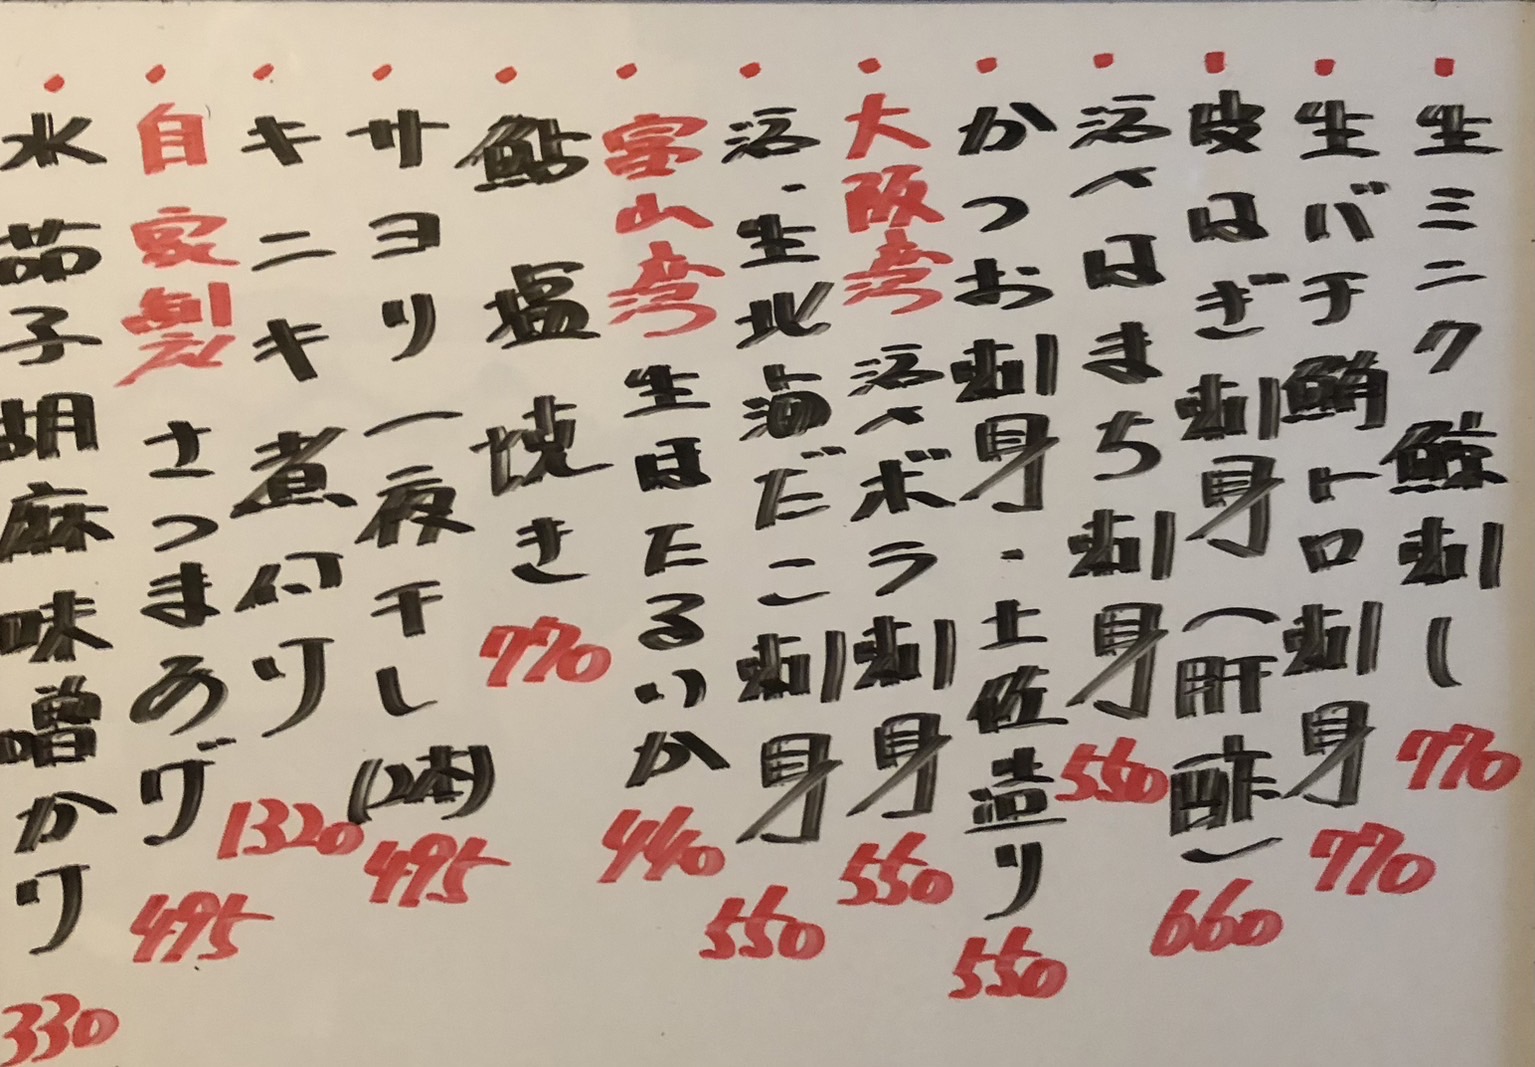 ・生ミニク鯨刺し 770
・生バチ鮪トロ刺身 770
・皮はぎ刺身（肝酢） 660
・活〆はまち刺身 550
・かつお刺身・土佐造り 550
・大阪湾活〆ボラ刺身 550
・活・生北海だこ刺身 550
・富山湾生ほたるいか 440
・鮎塩焼き 770
・サヨリ一夜干し(2本) 495
・キニキ煮付り 1320
・自家製さつまあげ 495
・水茄子胡麻味噌かけ 330